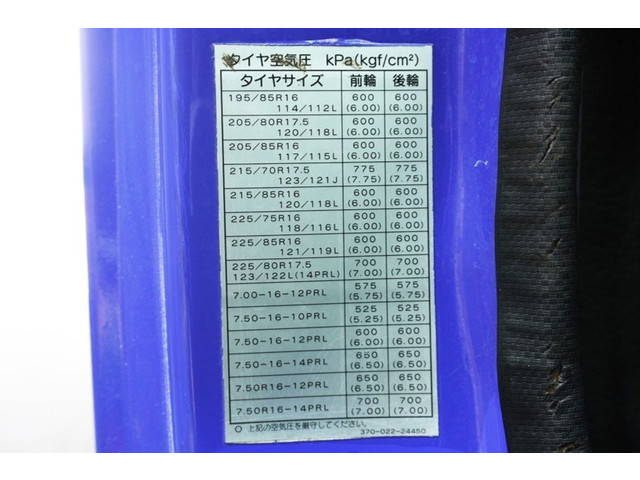 タイヤ空気圧 kPa(kgf/cm²)
タイヤサイズ 前輪 後輪
195/85R16 600 600
114/112L (6.00) (6.00)
205/80R17.5 600 600
120/118L (6.00) (6.00)
205/85R16 600 600
117/115L (6.00) (6.00)
215/70R17.5 775 775
123/121J (7.75) (7.75)
215/85R16 600 600
120/118L (6.00) (6.00)
225/75R16 600 600
118/116L (6.00) (6.00)
225/85R16 600 600
121/119L (6.00) (6.00)
225/80R17.5 700 700
123/122L(14PRL) (7.00) (7.00)
7.00-16-12PRL 575 575
(5.75) (5.75)
7.50-16-10PRL 525 525
(5.25) (5.25)
7.50-16-12PRL 600 600
(6.00) (6.00)
7.50-16-14PRL 650 650
(6.50) (6.50)
7.50R16-12PRL 650 650
(6.50) (6.50)
7.50R16-14PRL 700 700
(7.00) (7.00)
○ 上記の空気圧を厳守してください。 370-022-24450